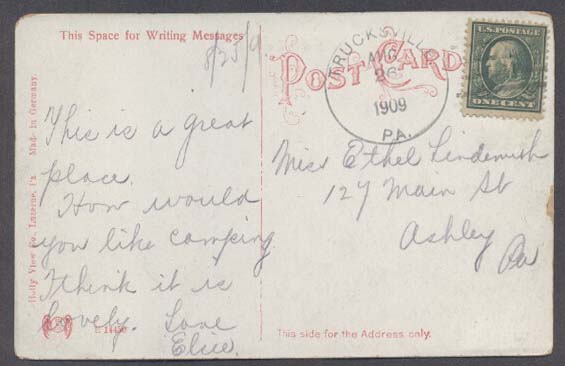 This Space for Writing Messages
8/25/9
POST CARD
TRUCKSVILLE
AUG
26
1909
PA.
U.S. POSTAGE
ONE CENT
This is a great
place.
How would
you like camping
I think it is
lovely. Love
Elsie.
Miss Ethel Lindermuth
127 Main St
Ashley
Pa
Holly View Co., Luzerne, Pa Made in Germany.
E 14450
This side for the Address only.